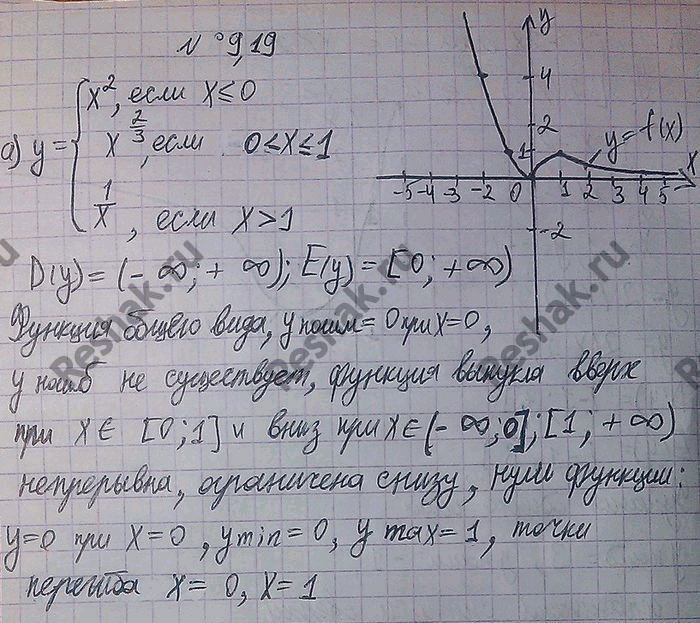 N°9,19
а) y = { x², если x ≤ 0
x^(2/3), если 0 < x ≤ 1
1/x, если x > 1
y
4
2
1
y=f(x)
x
-5 -4 -3 -2 0 1 2 3 4 5
-2
D(y) = (-∞; +∞); E(y) = [0; +∞)
Функция общего вида, y наим = 0 при x=0,
y наиб не существует, функция выпукла вверх
при x ∈ [0;1] и вниз при x ∈ (-∞;0]; [1; +∞)
непрерывна, ограничена снизу, нули функции:
y=0 при x=0, ymin=0, y max=1, точки
перегиба x=0, x=1
Reshak.ru
Reshak.ru
Reshak.ru
Reshak.ru